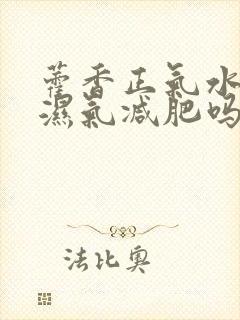 藿香正氣水
濕氣減肥吗
法比奧